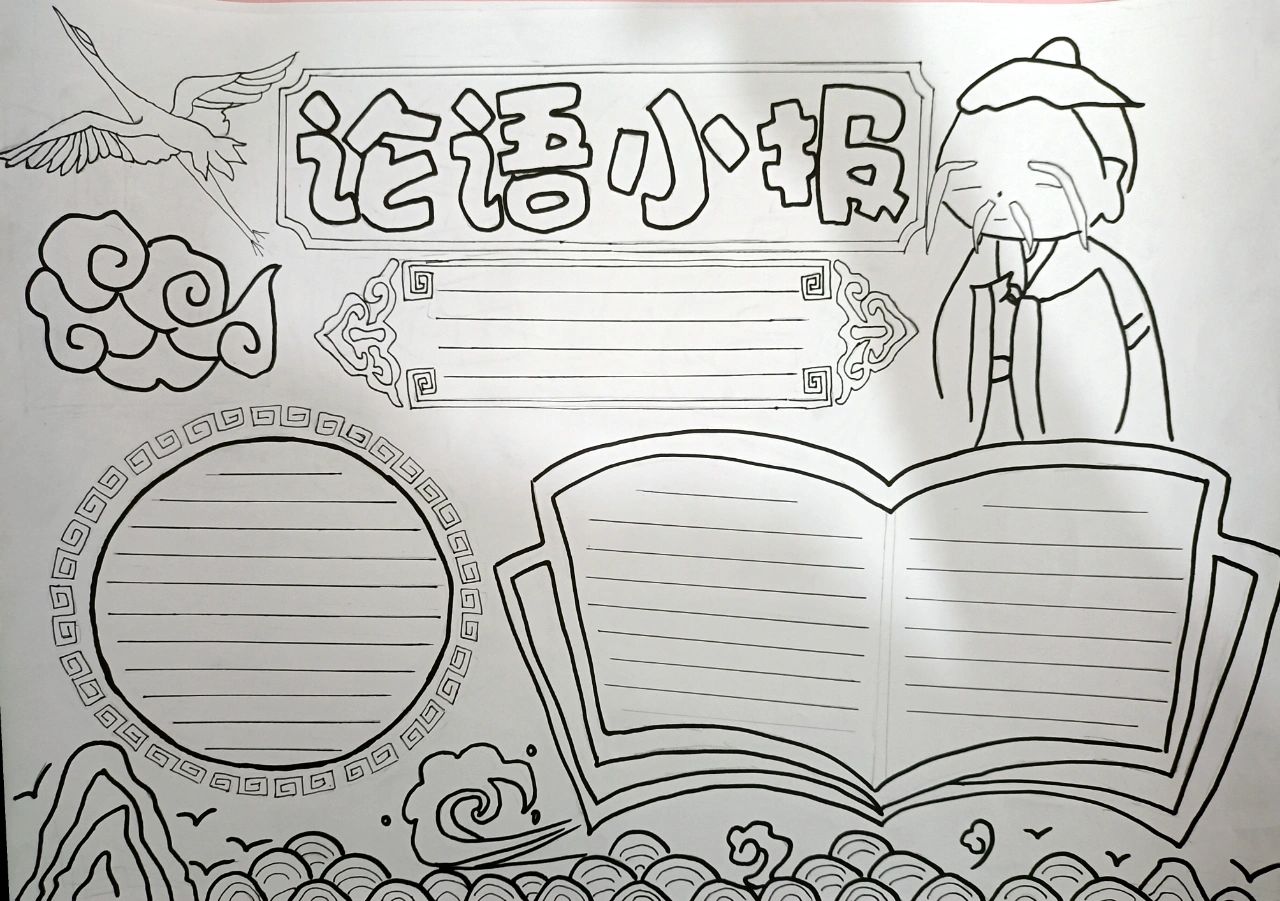 论语小报